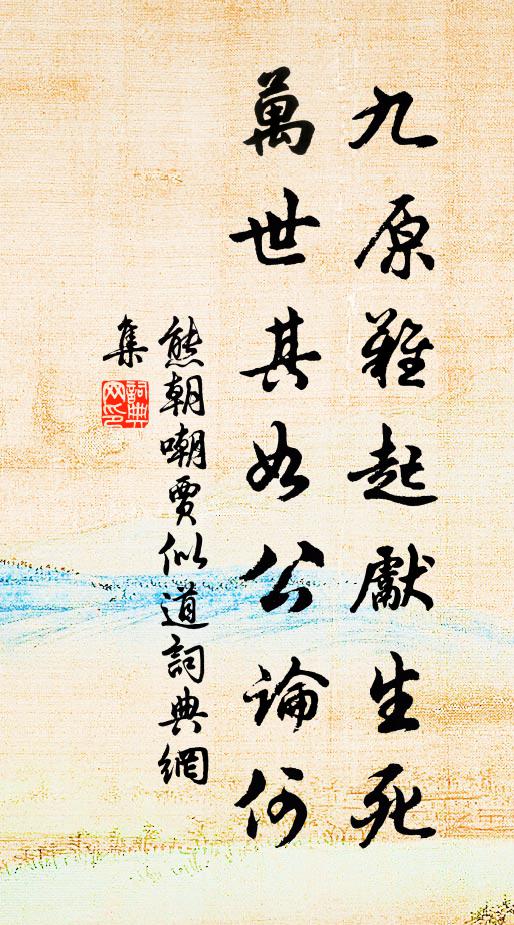 九原難起獻生死
萬世其如公論何
熊朝嘲賈似道詞典網
集
詞典網